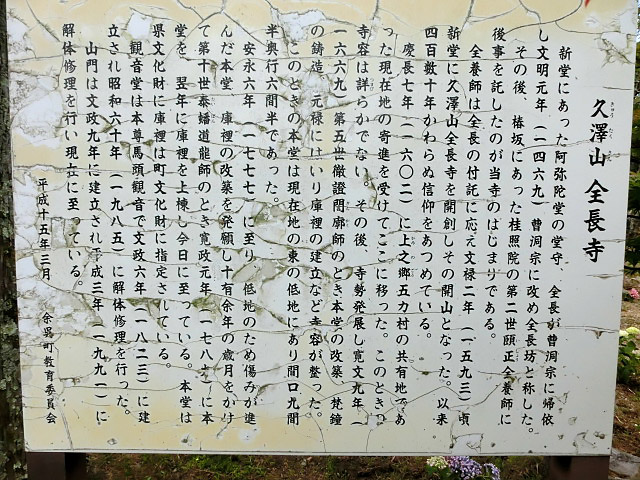 久澤山 全長寺
きゅう たく
新堂にあった阿弥陀堂の堂守、全長が曹洞宗に帰依
し文明元年（一四六九）曹洞宗に改め全長坊と称した。
その後、椿坂にあった桂照院の第二世頤正全養師に
後事を託したのが当寺のはじまりである。
全養師は全長の付託に応え文禄二年（一五九三）頃
新堂に久澤山全長寺を開創しその開山となった。以来
四百数十年かわらぬ信仰をあつめている。
慶長七年（一六〇二）に上之郷五カ村の共有地であ
った現在地の寄進を受けてここに移った。このときの
寺容は詳らかでない。その後、寺勢発展し寛文九年（
一六六九）第五世徹證門廓師のとき本堂の改築、梵鐘
の鋳造、元禄にはいり庫裡の建立など寺容が整った。
このときの本堂は現在地の東の低地にあり間口九間
半奥行六間半であった。
安永六年（一七七七）に至り、低地のため傷みが進
んだ本堂、庫裡の改築を発願し十有余年の歳月をかけ
て第十世泰幡道龍師のとき寛政元年（一七八九）に本
堂を、翌年に庫裡を上棟し今日に至っている。本堂は
県文化財に庫裡は町文化財に指定されている。
観音堂は本尊馬頭観音で文政六年（一八二三）に建
立され昭和六十年（一九八五）に解体修理を行った。
山門は文政九年に建立され平成三年（一九九一）に
解体修理を行い現在に至っている。
平成十五年三月
余呉町教育委員会